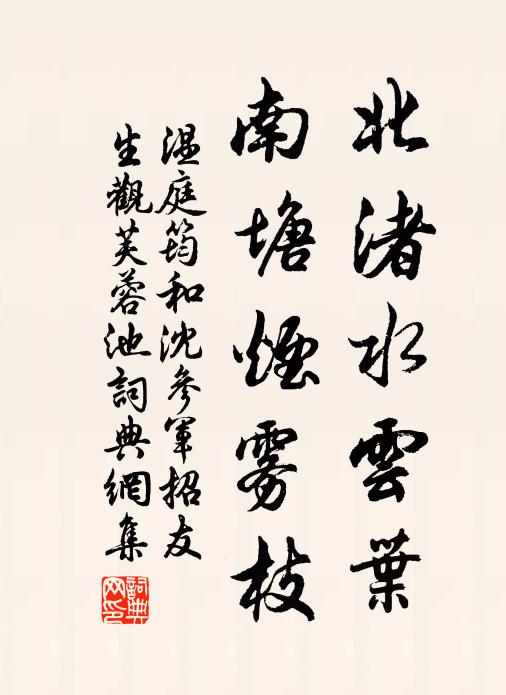 北渚水雲葉
南塘煙霧枝
溫庭筠和沈參軍招友
生觀芙蓉池詞典網集
詞典網印